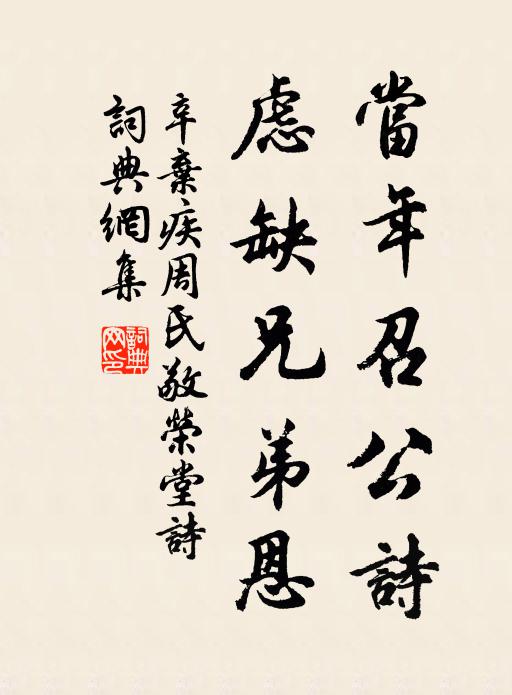 當年召公詩
慮缺兄弟恩
辛棄疾周氏敬榮堂詩
詞典網集
詞典
网印